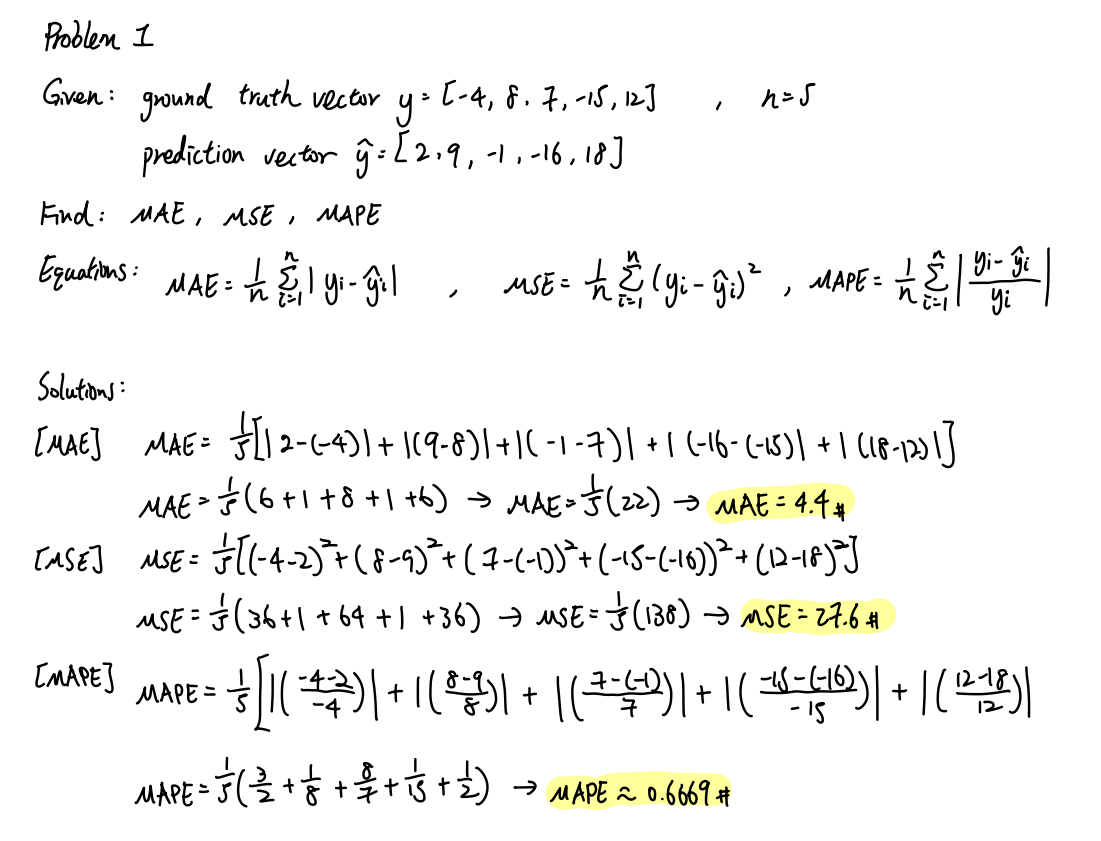 Problem 1
Given: ground truth vector y = [-4, 8, 7, -15, 12] , n=5
prediction vector ŷ = [2, 9, -1, -16, 18]
Find: MAE, MSE, MAPE
Equations: MAE = 1/n Σ_{i=1}^{n} |yi - ŷi| , MSE = 1/n Σ_{i=1}^{n} (yi - ŷi)² , MAPE = 1/n Σ_{i=1}^{n} |(yi - ŷi)/yi|
Solutions:
[MAE] MAE = 1/5[|2-(-4)| + |(9-8)| + |(-1-7)| + |(-16-(-15)| + |(18-12)|]
MAE = 1/5(6+1+8+1+6) → MAE = 1/5(22) → MAE = 4.4 #
[MSE] MSE = 1/5[(-4-2)² + (8-9)² + (7-(-1))² + (-15-(-16))² + (12-18)²]
MSE = 1/5(36+1+64+1+36) → MSE = 1/5(138) → MSE = 27.6 #
[MAPE] MAPE = 1/5[|((-4-2)/-4)| + |((8-9)/8)| + |((7-(-1))/7)| + |((-15-(-16))/-15)| + |((12-18)/12)|
MAPE = 1/5(3/2 + 1/8 + 8/7 + 1/15 + 1/2) → MAPE ≈ 0.6669 #